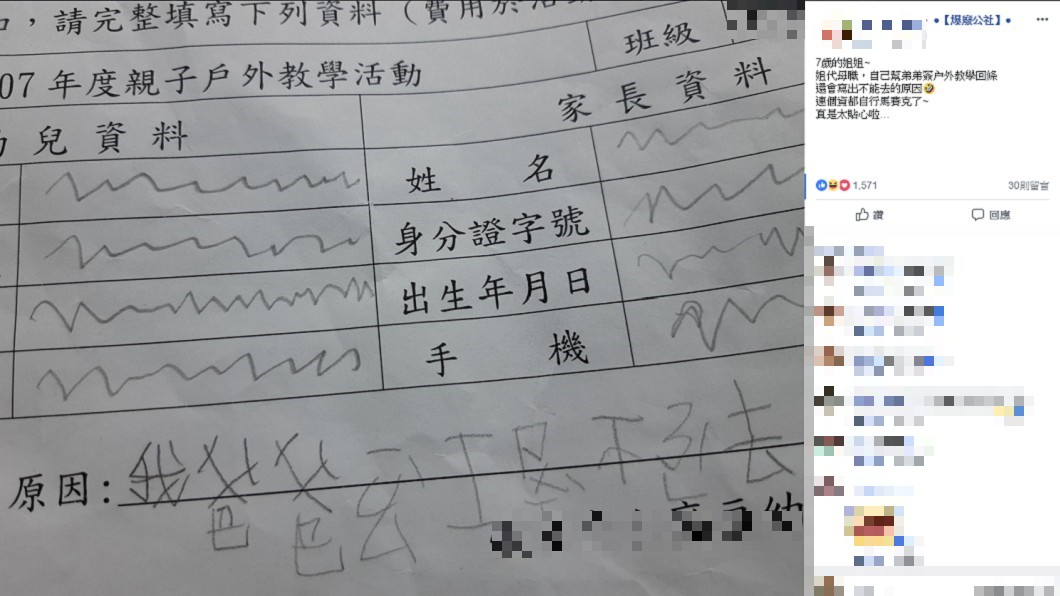 ，請完整填寫下列資料（費用於活動
班級
07年度親子戶外教學活動
兒資料
家長資料
姓名
身分證字號
出生年月日
手機
原因：我爸爸去工
不
去
•【爆廢公社】•
7歲的姐姐~
姐代母職，自己幫弟弟簽戶外教學回條
還會寫出不能去的原因🤣
連個資都自行馬賽克了~
真是太貼心啦...
1,571
30則留言
讚
回應